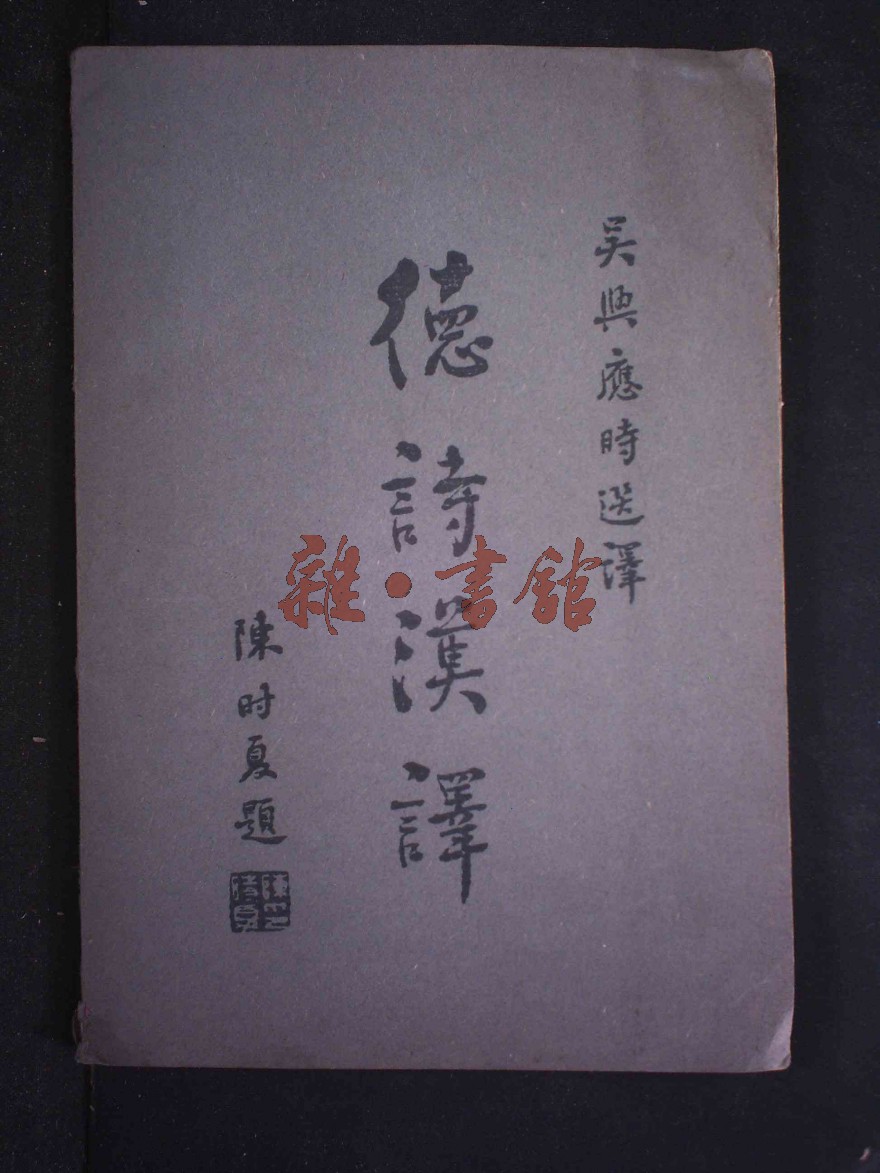 吴興應時選譯
德詩漢譯
陳时夏題
雜·書館